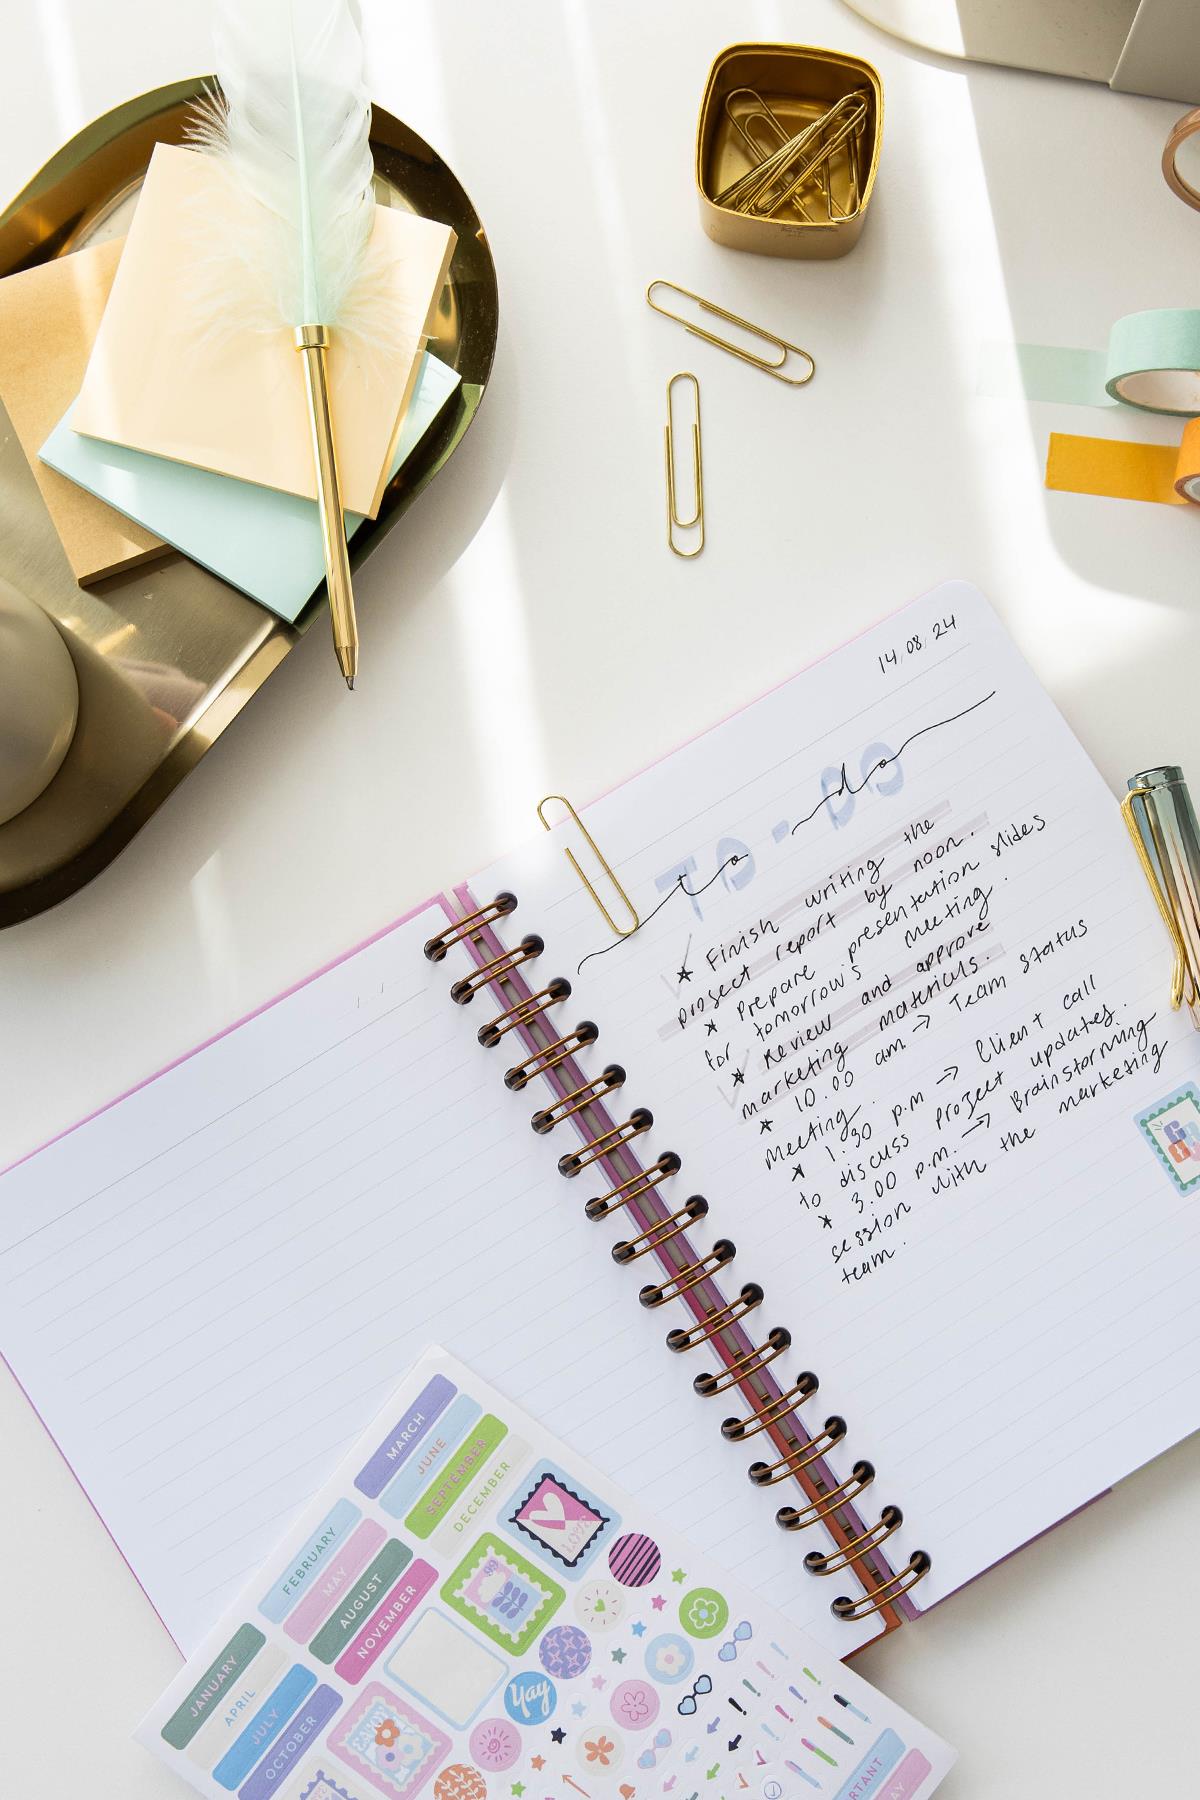 14.08.24
TO-DO
to-do
* Finish writing the
project report by noon.
* Prepare presentation slides
for tomorrow's meeting.
* Review and approve
marketing materials.
* 10.00 am → Team status
Meeting.
* 1.30 p.m → Client call
to discuss project updates.
* 3.00 p.m. → Brainstorming
session with the marketing
team.
MARCH
JUNE
SEPTEMBER
DECEMBER
FEBRUARY
MAY
AUGUST
NOVEMBER
JANUARY
APRIL
JULY
OCTOBER
LOVE
99
Yay
ENJOY